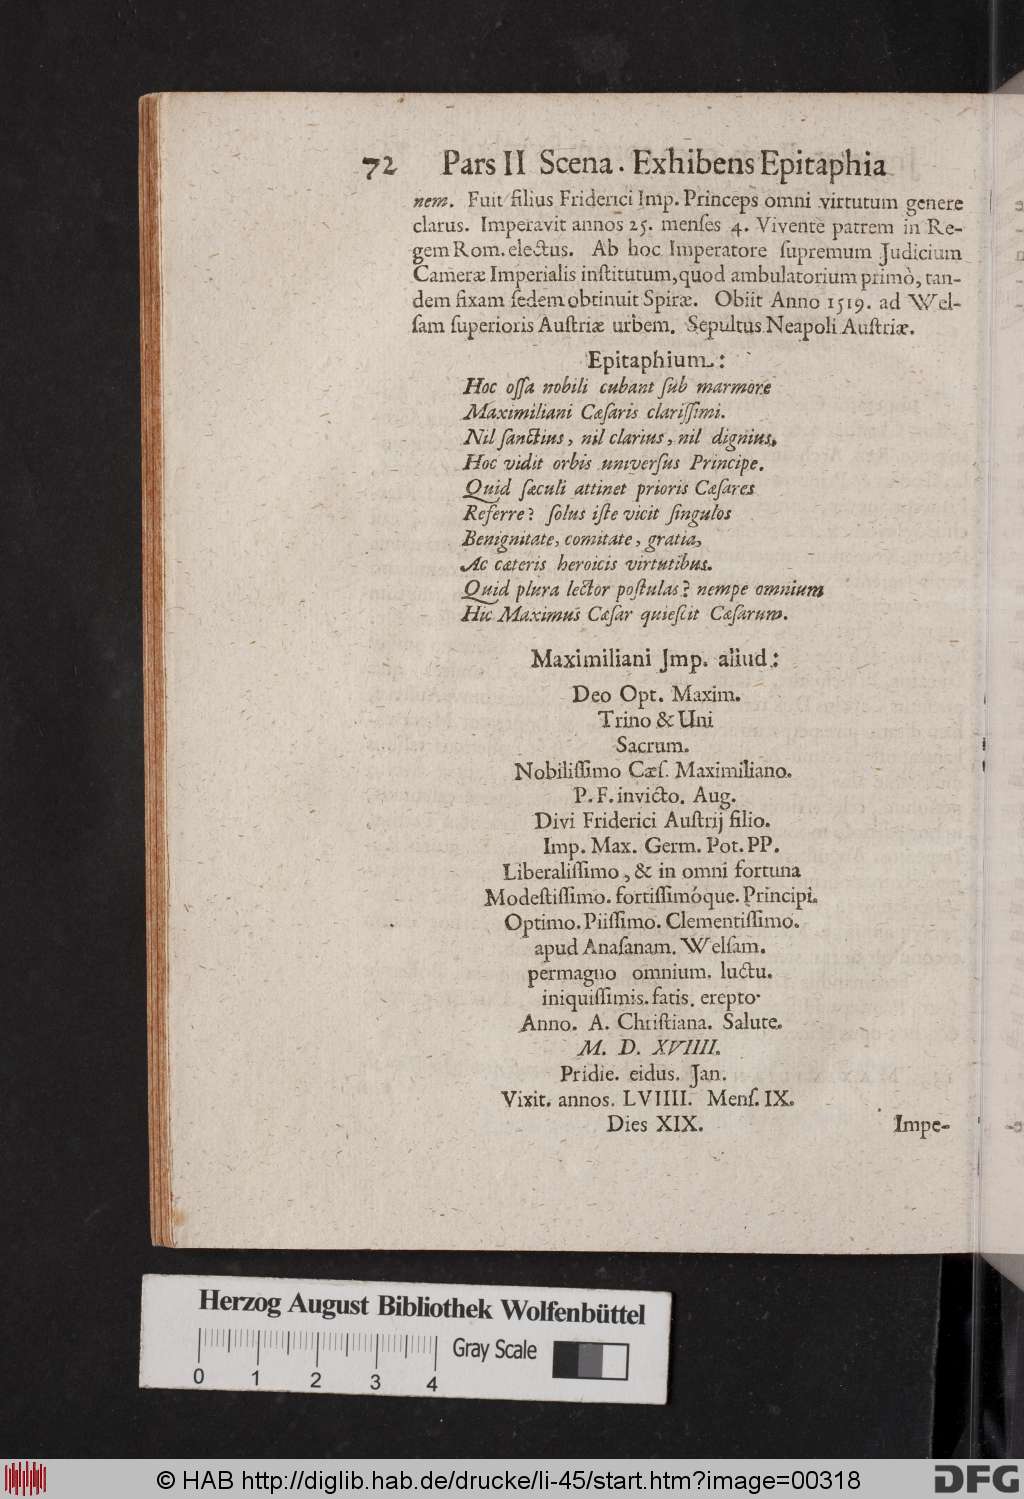 72 Pars II Scena. Exhibens Epitaphia
nem. Fuit filius Friderici Imp. Princeps omni virtutum genere
clarus. Imperavit annos 25. menſes 4. Vivente patrem in Re-
gem Rom. electus. Ab hoc Imperatore ſupremum Judicium
Cameræ Imperialis inſtitutum, quod ambulatorium primò, tan-
dem fixam ſedem obtinuit Spiræ. Obiit Anno 1519. ad Wel-
ſam ſuperioris Auſtriæ urbem. Sepultus Neapoli Auſtriæ.
Epitaphium:
Hoc oſſa nobili cubant ſub marmore
Maximiliani Cæſaris clariſſimi.
Nil ſanctius, nil clarius, nil dignius,
Hoc vidit orbis univerſus Principe.
Quid ſæculi attinet prioris Cæſares
Referre? ſolus iſte vicit ſingulos
Benignitate, comitate, gratia,
Ac cæteris heroicis virtutibus.
Quid plura lector poſtulas? nempe omnium
Hic Maximus Cæſar quieſcit Cæſarum.
Maximiliani Jmp. aliud:
Deo Opt. Maxim.
Trino & Uni
Sacrum.
Nobiliſſimo Cæſ. Maximiliano.
P. F. invicto. Aug.
Divi Friderici Auſtrij filio.
Imp. Max. Germ. Pot. PP.
Liberaliſſimo, & in omni fortuna
Modeſtiſſimo. fortiſſimóque. Principi.
Optimo. Piiſſimo. Clementiſſimo.
apud Anaſanam. Welſam.
permagno omnium. luctu.
iniquiſſimis. fatis. erepto.
Anno. A. Chriſtiana. Salute.
M. D. XVIIII.
Pridie. eidus. Jan.
Vixit. annos. LVIIII. Menſ. IX.
Dies XIX.
Impe-
Herzog August Bibliothek Wolfenbüttel
Gray Scale
0 1 2 3 4
© HAB http://diglib.hab.de/drucke/li-45/start.htm?image=00318
DFG